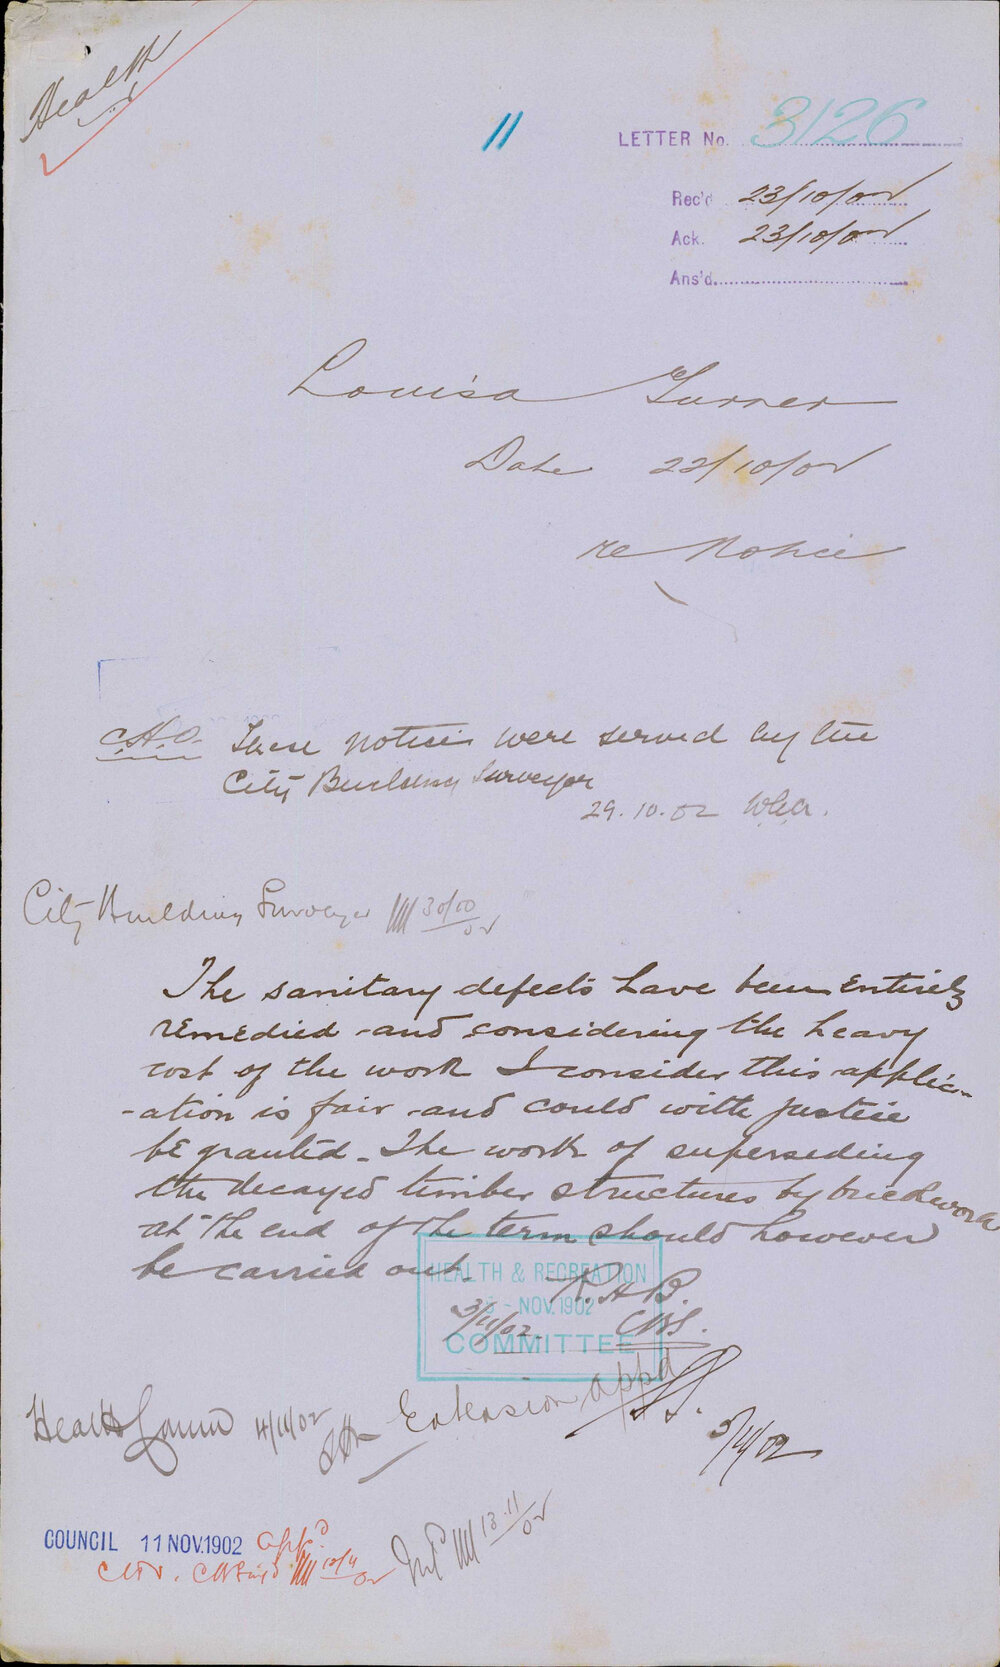 Health
11
LETTER No. 3126
Rec'd 23/10/02
Ack. 23/10/02
Ans'd.
Louisa Turner
Date 22/10/02
re Notice
C.H.O. These notices were served by the
City Building Surveyor
29.10.02
City Building Surveyor 30/10/02
The sanitary defects have been entirely
remedied and considering the heavy
cost of the work I consider this applic-
-ation is fair and could with justice
be granted. The work of superseding
the decayed timber structures by brickwork
at the end of the term should however
be carried out.
R.H.B.
3/11/02. CBS.
HEALTH & RECREATION
5 - NOV. 1902
COMMITTEE
Extension appd
5/11/02
Health Comm 4/11/02
COUNCIL 11 NOV. 1902 appd
12/11/02
13.11/02